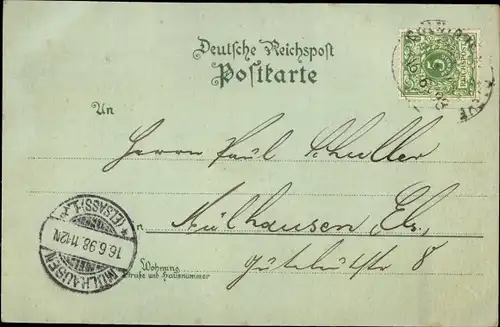 Deutsche Reichspost
Postkarte
An
Herrn Paul Schuller
Mülhausen, Els.
Wohnung
Straße und Hausnummer
8
MÜLHAUSEN
16.6.98.11-12N.
* (ELSASS) *
5